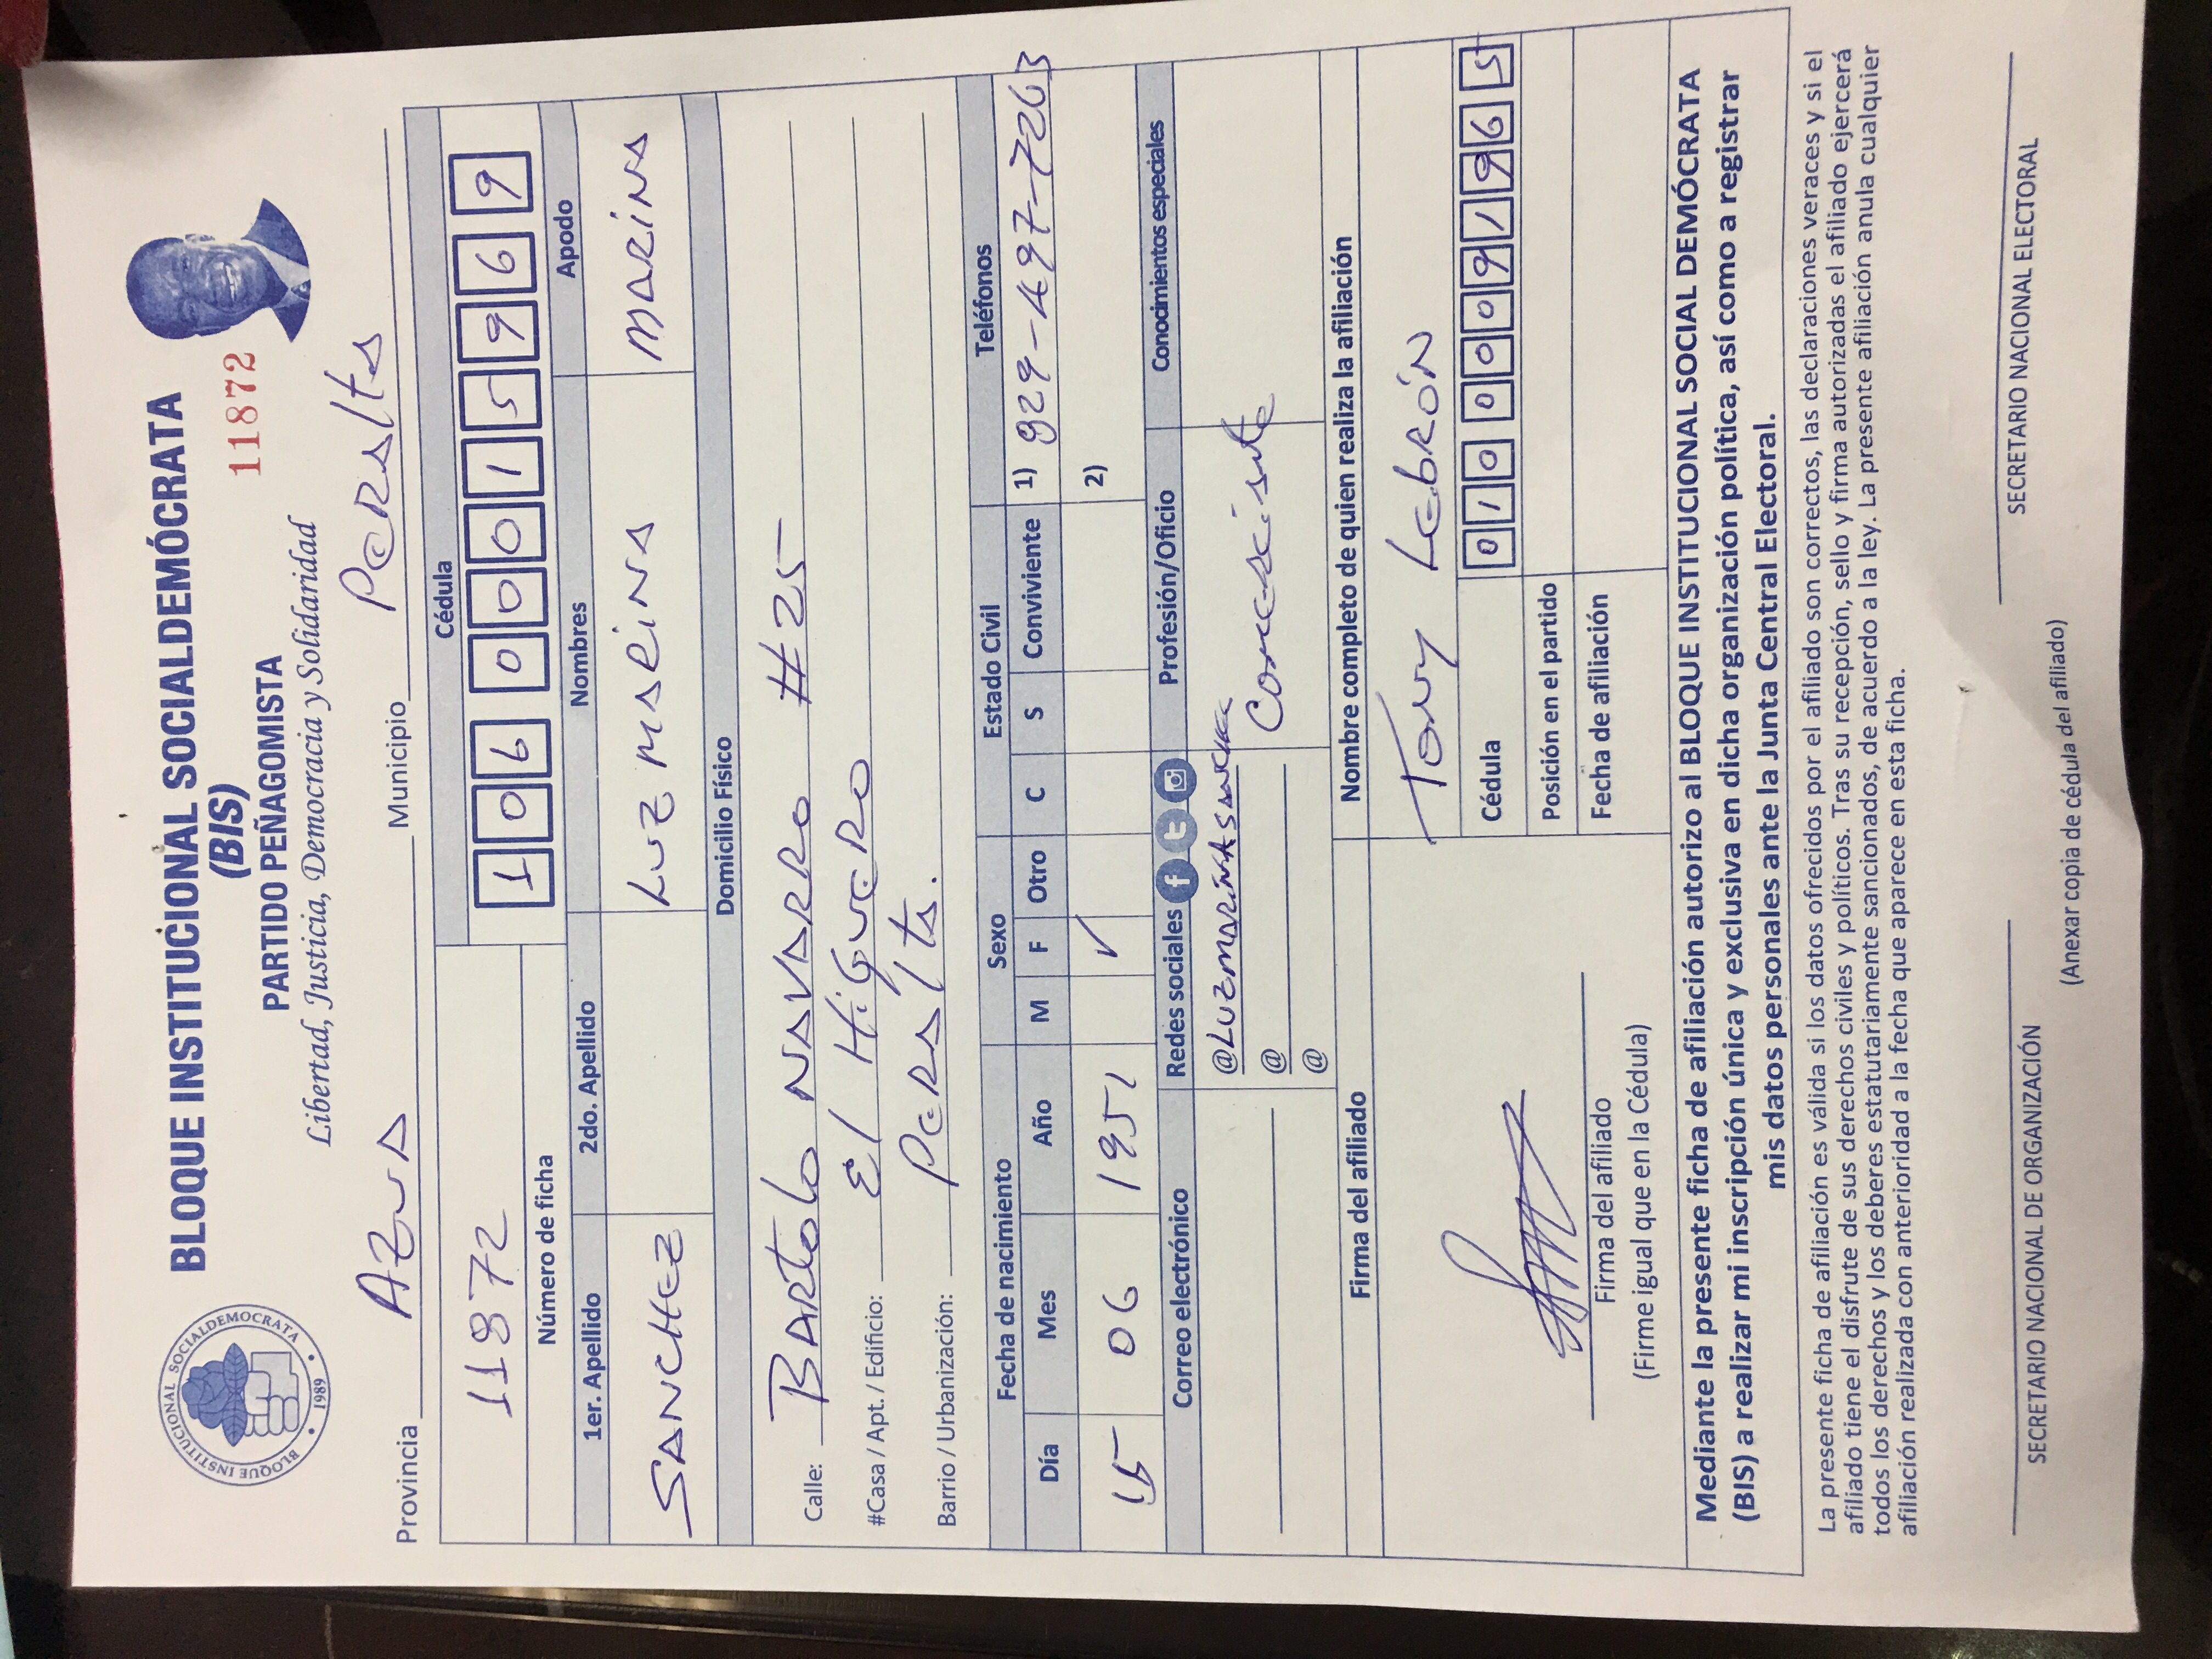 BLOQUE INSTITUCIONAL SOCIALDEMÓCRATA
(BIS)
PARTIDO PEÑAGOMISTA
11872
Libertad, Justicia, Democracia y Solidaridad
BLOQUE INSTITUCIONAL SOCIALDEMOCRATA
1989
Provincia Azua Municipio Peralta
11872
Número de ficha
Cédula
1 0 6 0 0 0 1 5 9 6 9
1er. Apellido 2do. Apellido Nombres Apodo
SANCHEZ Luz Mareina Mareina
Domicilio Físico
Calle: Bartolo NAVARRO #25
#Casa / Apt. / Edificio: El Higuero
Barrio / Urbanización: Peralta.
Fecha de nacimiento Sexo Estado Civil Teléfonos
Día Mes Año M F Otro C S Conviviente 1) 829-497-7263
15 06 1951 ✓ 2)
Correo electrónico Redes sociales Profesión/Oficio Conocimientos especiales
@LUZMARINASanchez Comerciante
@
@
Firma del afiliado Nombre completo de quien realiza la afiliación
Tony Lebrón
Cédula 0 1 0 0 0 0 9 1 9 6 5
Posición en el partido
Fecha de afiliación
Firma del afiliado
(Firme igual que en la Cédula)
Mediante la presente ficha de afiliación autorizo al BLOQUE INSTITUCIONAL SOCIAL DEMÓCRATA
(BIS) a realizar mi inscripción única y exclusiva en dicha organización política, así como a registrar
mis datos personales ante la Junta Central Electoral.
La presente ficha de afiliación es válida si los datos ofrecidos por el afiliado son correctos, las declaraciones veraces y si el
afiliado tiene el disfrute de sus derechos civiles y políticos. Tras su recepción, sello y firma autorizadas el afiliado ejercerá
todos los derechos y los deberes estatutariamente sancionados, de acuerdo a la ley. La presente afiliación anula cualquier
afiliación realizada con anterioridad a la fecha que aparece en esta ficha.
SECRETARIO NACIONAL DE ORGANIZACIÓN SECRETARIO NACIONAL ELECTORAL
(Anexar copia de cédula del afiliado)